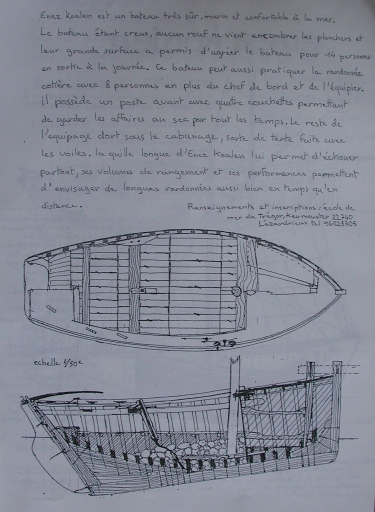 Enez Koalen est un bateau très sûr, marin et confortable à la mer.
Le bateau étant creux, aucun rouf ne vient encombrer les planchers et
leur grande surface a permis d'agréer le bateau pour 14 personnes
en sortie à la journée. Ce bateau peut aussi pratiquer la randonnée
cotière avec 8 personnes en plus du chef de bord et de l'équipier.
il possède un poste avant avec quatre couchettes permettant
de garder les affaires au sec par tout les temps. Le reste de
l'équipage dort sous le cabanage, sorte de tente faite avec
les voiles. la quille longue d'Enez Koalen lui permet d'échouer
partout, ses volumes de rangement et ses performances permettent
d'envisager de longues randonnées aussi bien en temps qu'en
distance.
Renseignements et inscriptions : école de
mer du Trégor, 22740
Lézardrieux tel 96223305
echelle 1/50e